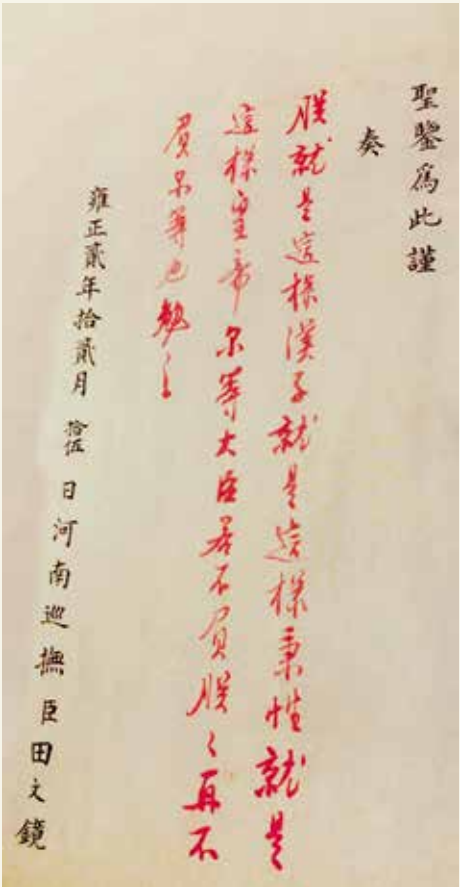 聖鑒爲此謹
奏
朕就是這様漢子就是這様秉性就是
這様皇帝尔等大臣若不負朕〻再不
負尔等也勉〻
雍正貳年拾貳月拾伍日河南巡撫臣田文鏡